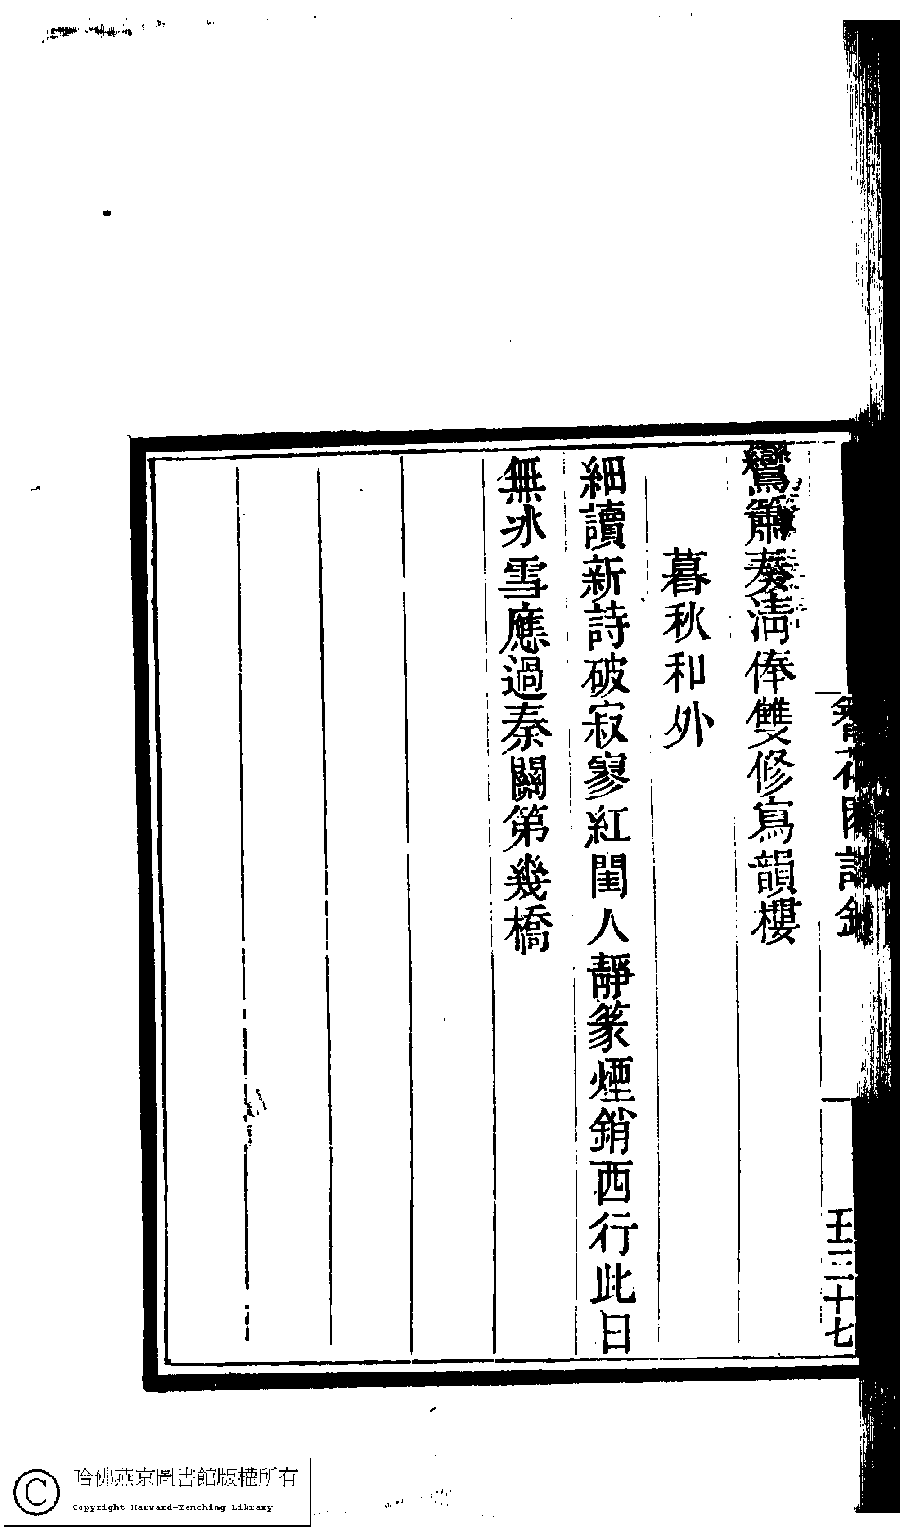 鸞簫奏淸俸雙修寫韻樓
暮秋和外
細讀新詩破寂寥紅閨人靜篆煙銷西行此日
無冰雪應過秦關第幾橋
壬三十七
哈佛燕京圖書館版權所有
Copyright Harvard-Yenching Library